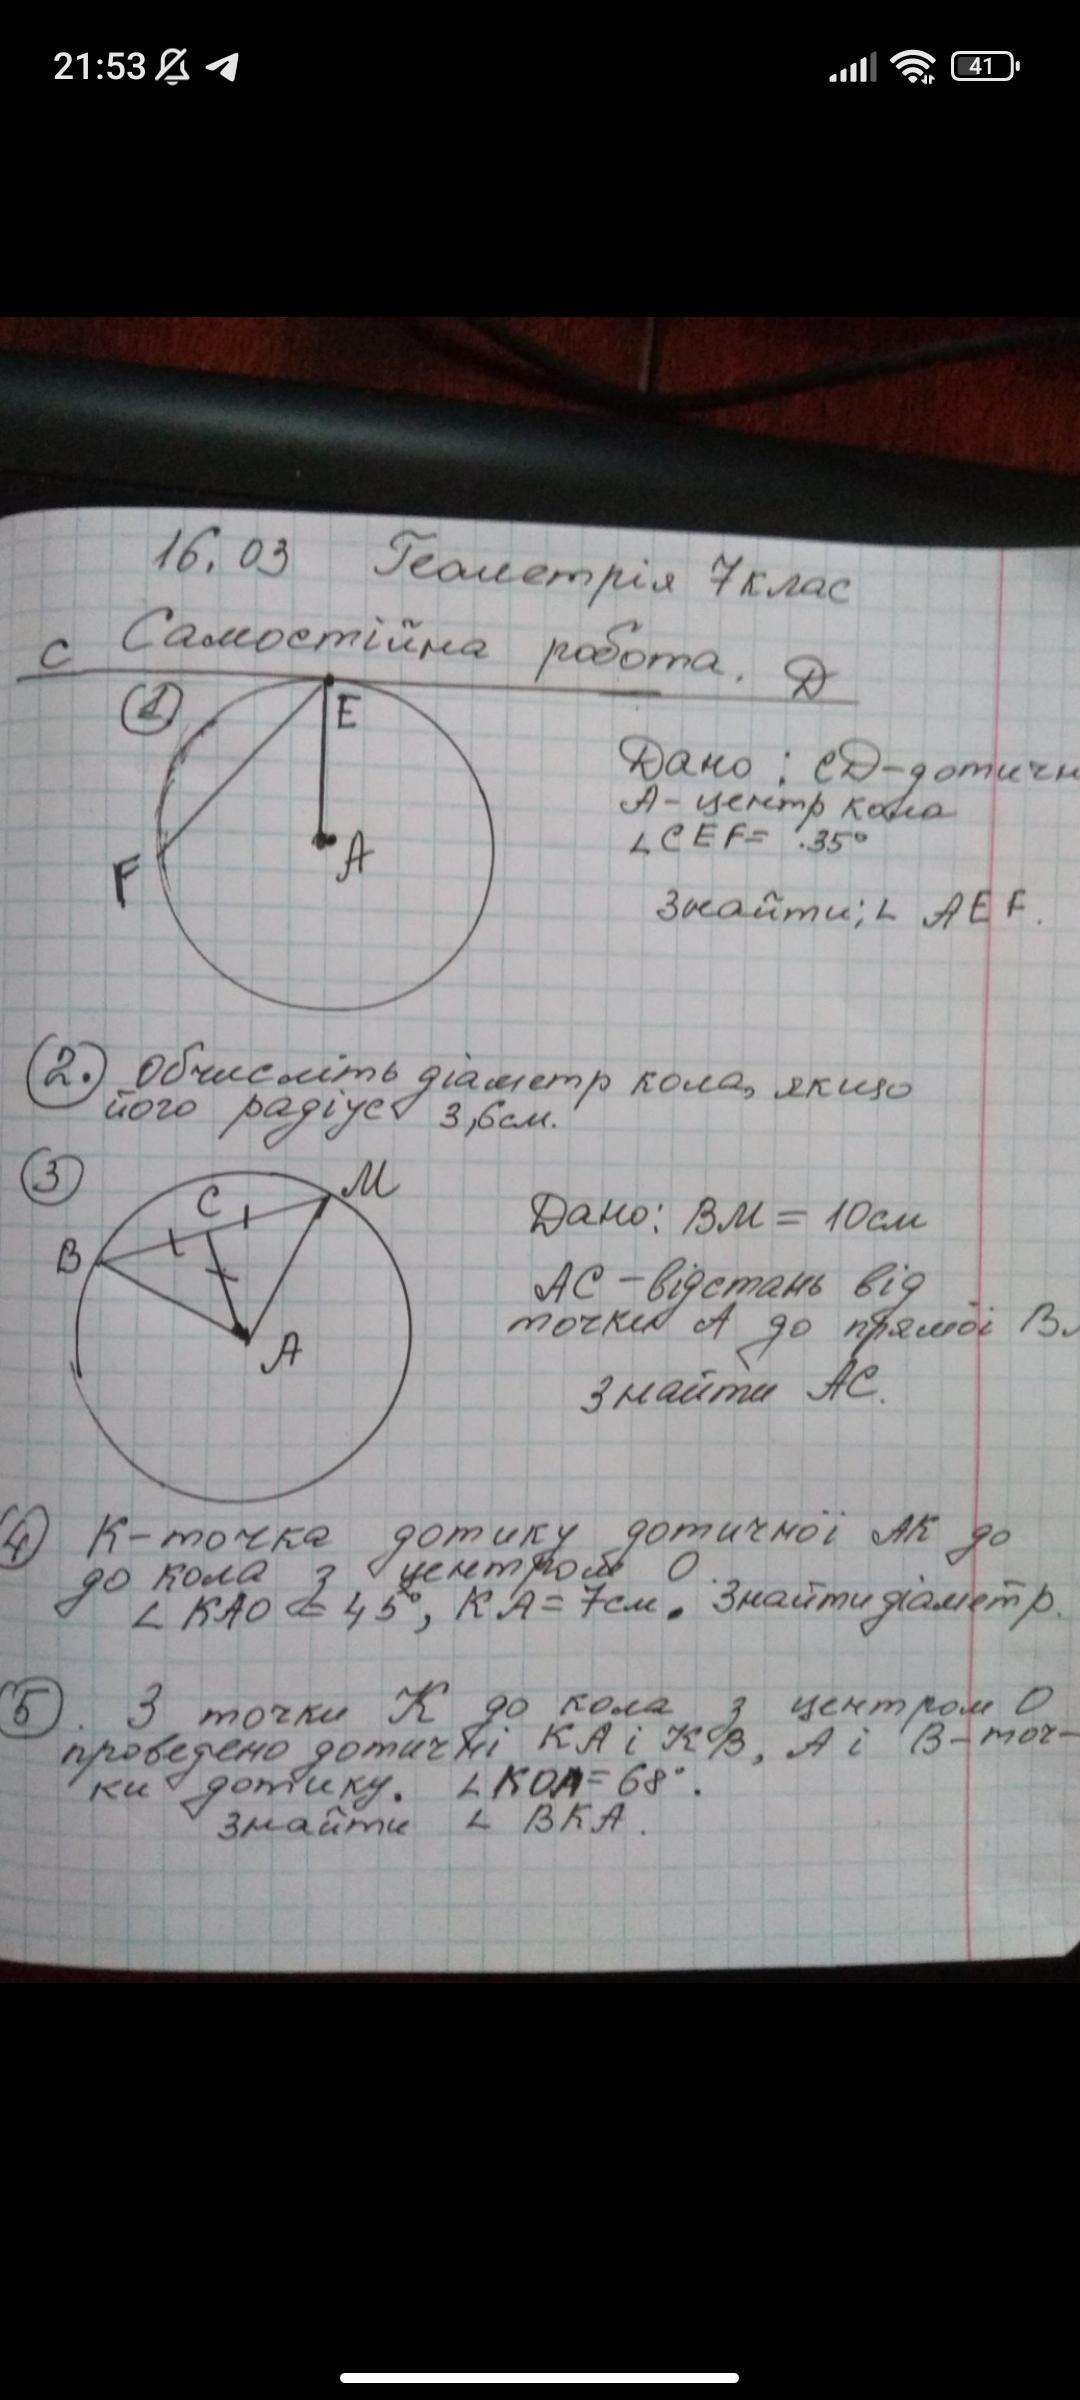 21:53
41
16.03 Геометрія 7 клас
Самостійна робота.
C
D
1
E
A
F
Дано: CD-дотичн
A-центр кола
∠CEF= 35°
Знайти; ∠ AEF.
2. Обчисліть діаметр кола, якщо
його радіус 3,6 см.
3
C
M
B
A
Дано: BM = 10см
AC - відстань від
точки A до прямої B
Знайти AC.
4 K-точка дотику дотичної AK до
до кола з центром O.
∠ KAO = 45°, KA = 7см. Знайти діаметр.
5. З точки K до кола з центром O
проведено дотичні KA і KB, A і B-точ-
ки дотику. ∠KOA=68°.
Знайти ∠ BKA.